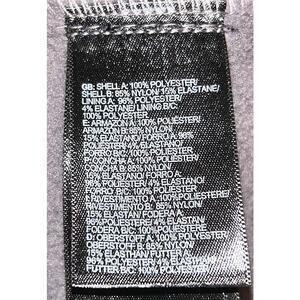 GB: SHELL A: 100% POLYESTER/
SHELL B: 85% NYLON/ 15% ELASTANE/
LINING A: 96% POLYESTER/
4% ELASTANE/ LINING B/C:
100% POLYESTER
E: ARMAZON A: 100% POLIESTER/
ARMAZON B: 85% NYLON/
15% ELASTANO/ FORRO A: 96%
POLIESTER/ 4% ELASTANO/
FORRO B/C: 100% POLIESTER
P: CONCHA A: 100% POLIESTER/
CONCHA B: 85% NYLON/
15% ELASTANO/ FORRO A:
96% POLIESTER/ 4% ELASTANO/
FORRO B/C: 100% POLIESTER
I: RIVESTIMENTO A: 100%POLIESTERE/
RIVESTIMENTO B: 85% NYLON/
15% ELASTAN/ FODERA A:
96%POLIESTERE/ 4% ELASTAN/
FODERA B/C: 100% POLIESTERE
D: OBERSTOFF A: 100% POLYESTER/
OBERSTOFF B: 85% NYLON/
15% ELASTHAN/ FUTTER A:
96% POLYESTER/ 4% ELASTHAN/
FUTTER B/C: 100% POLYESTER